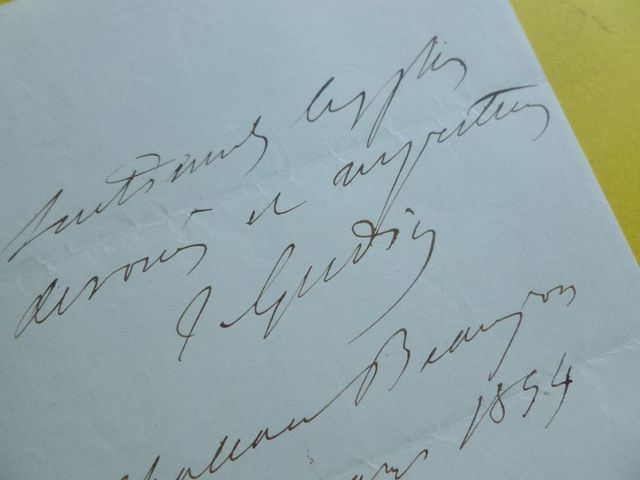 sentiments les plus
dévoués et respectueux
J Gudin
Chateau Beaujon
mars 1854